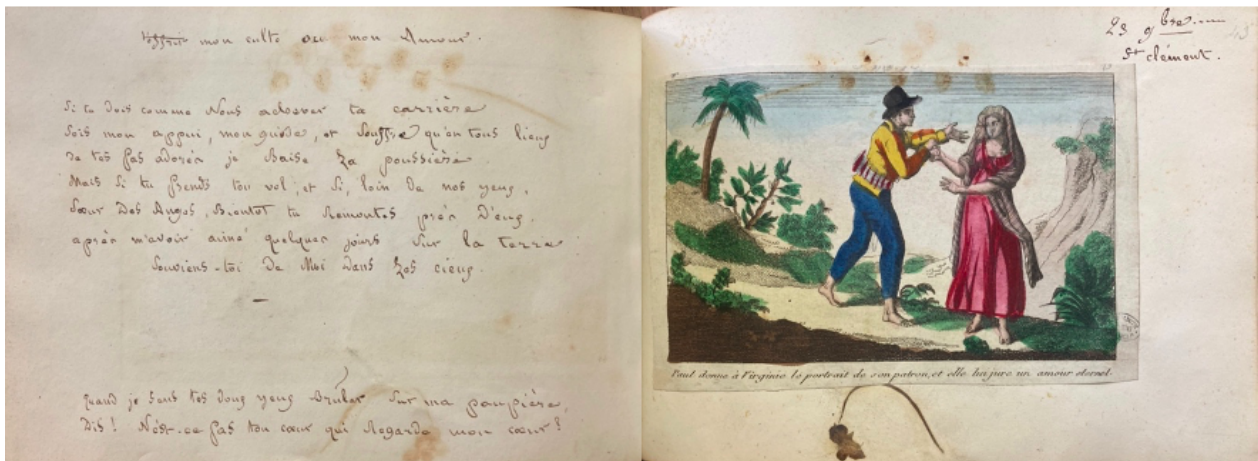 mon culte ou mon Amour.
Si tu dois comme Nous achever ta carrière
Sois mon appui, mon guide, et Souffre qu'en tous lieux
De tes pas adorés je Baise la poussière.
Mais Si tu prends ton vol, et Si, loin de nos yeux,
Sœur Des Anges, Bientot tu Remontes près D'eux,
après m'avoir aimé quelques jours Sur la terre
Souviens-toi de Moi dans les cieux.
quand je sens tes doux yeux brûler Sur ma paupière,
Dis! N'est-ce pas ton cœur qui Regarde mon cœur?
23 9bre
St clément.
Paul donne à Virginie le portrait de son patron, et elle lui jure un amour eternel.